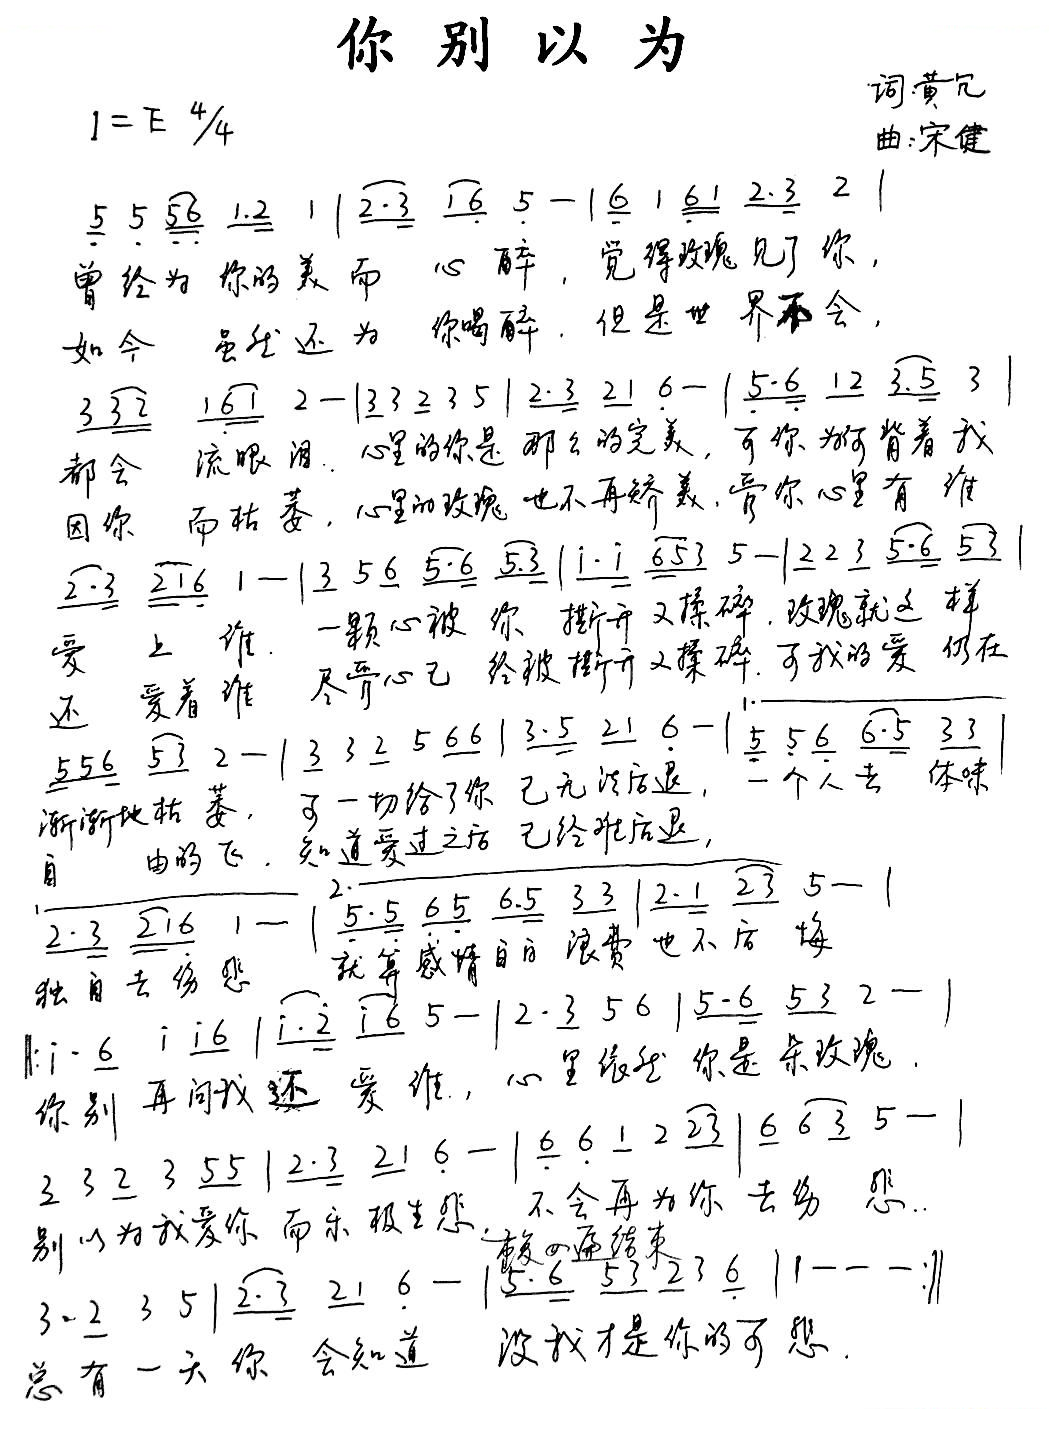 你别以为
词:黄冗
1=E 4/4
曲:宋健
5 5 56 1·2 1 | 2·3 i6 5 — | 6 1 61 2·3 2 |
曾经为你的美而心醉，觉得玫瑰见了你，
如今虽然还为你喝醉．但是世界不会，
3 32 161 2 — | 3 3 2 3 5 | 2·3 21 6 — | 5·6 12 3.5 3 |
都会流眼泪．心里的你是那么的完美，可你为何背着我
因你而枯萎．心里的玫瑰也不再娇美．管你心里有谁
2·3 216 1 — | 3 5 6 5·6 5.3 | i·i 653 5 — | 2 2 3 5·6 53 |
爱上谁．一颗心被你撕开又揉碎．玫瑰就这样
还爱着谁 尽管心已经被撕开又揉碎．可我的爱仍在
1·
556 53 2 — | 3 3 2 5 66 | 3·5 21 6 — | 5 5 6 6·5 33 |
渐渐地枯萎．可一切给了你已无法后退，一个人去体味
自由的飞．知道爱过之后已经难后退，
1 2·
2·3 216 1 — | 5·5 65 6.5 33 | 2·1 23 5 — |
独自去伤悲 就算感情自白浪费也不后悔
‖: i·6 i i6 | i·2 i6 5 — | 2·3 5 6 | 5·6 53 2 — |
你别再问我还爱谁．，心里依然你是朵玫瑰．
3 3 2 3 55 | 2·3 21 6 — | 6 6 1 2 23 | 6 6 3 5 — |
别以为我爱你而乐极生悲．不会再为你去伤悲．．
遍结束
3·2 3 5 | 2·3 21 6 — | 5·6 53 2 3 6 | 1 — — — :‖
总有一天你会知道 没我才是你的可悲．